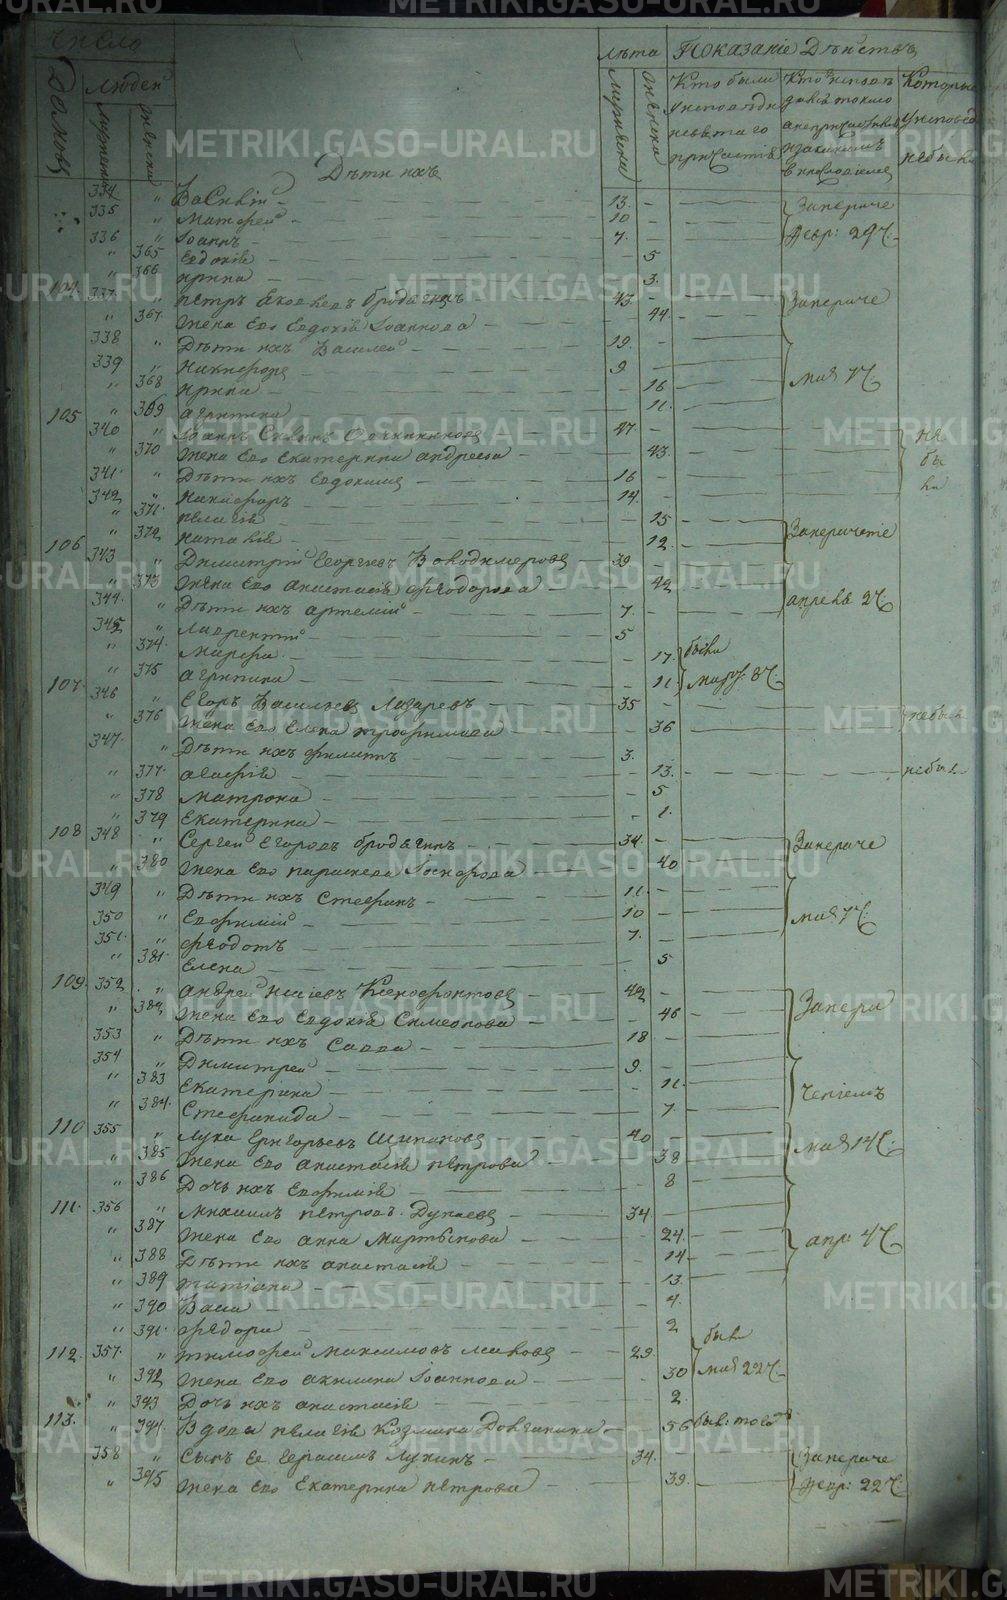 Число
Лѣта Показанiе Дѣйствъ
Домовъ Людей
Мужеска Женска
Мужеска Женска
Кто были
у исповѣди
и святаго
причастiя
Которые
у исповѣд
небыли
Дѣти ихъ
334 " Василiй - 13. -
335 " Матфей - 10 - Запераче
336 " Iоаннъ - 7. - Февр: 29 Ч.
" 365 Евдокiя - 5
" 366 Ирина - 3.
104. 337. " Петръ Яковлевъ Бродягинъ - 43. - Запераче
" 367. Жена Его Евдокiя Iоаннова - 44.
338 " Дѣти ихъ Василей - 19. -
339 " Никифоръ - 9 - мая 7 Ч.
" 368 Ирина - 16 -
" 369 Агрипина - 11. -
105 340 " Iоаннъ Савинъ Овчинниковъ - 47. - не
" 370 Жена Его Екатерина Андреева - 43. - бы
341. " Дѣти ихъ Евдокимъ - 16 - ли
342 " Никифоръ - 14. -
" 371. Пелагiя - 15 -
" 372 Наталiя - 12. - Заперичетiе
106 343 " Димитрiй Георгiевъ Володимеровъ - 39 -
" 373 Жена Его Анастасiя Феодорова - 42 -
344. " Дѣти ихъ Артемiй - 7. - апрель 2 Ч.
345 " Лаврентiй - 5
" 374. Марфа - 17. были
" 375 Агрипина - 11. март. 8 Ч.
107. 346 " Егоръ Васильевъ Лазаревъ - 35 - небыли
" 376 Жена Его Елена Трофимова - 36
347. " Дѣти ихъ Филипъ - 3.
" 377. Агафiя - 13. - небыла
" 378 Матрона - 5
" 379 Екатерина - 1.
108 348 " Сергей Егоровъ Бродягинъ - 34. - Запераче
" 380 Жена Его Параскева Iосифова - 40
349 " Дѣти ихъ Стефанъ - 11. -
350 " Евфимiй - 10 - мая 7 Ч.
351. " Феодотъ - 7. -
" 381. Елена - 5
109. 352 " Андрей Исаiевъ Ксенофонтовъ - 42 - Запера
" 382 Жена Его Евдокiя Симеонова - 46 -
353 " Дѣти ихъ Савва - 18 -
354 " Димитрей - 9. -
" 383 Екатерина - 11. - ченiемъ
" 384. Стефанида - 7
110 355 " Лука Григорьевъ Шипановъ - 40 - мая 14 Ч.
" 385 Жена Его Анастасiя Петрова - 38
" 386 Дочь ихъ Евфимiя - 8
111. 356 " Михаилъ Петровъ Дунаевъ - 34 -
" 387 Жена Его Анна Мартынова - 24. апр: 4 Ч.
" 388 Дѣти ихъ Анастасiя - 14 -
" 389 Татiана - 13.
" 390 Васса - 4.
" 391. Федора - 2
112. 357. " Тимофей Максимовъ - 29. были
" 392 Жена Его Акилина Iоаннова - 30 мая 22 Ч.
" 393 Дочь ихъ Анастасiя - 2
113. " 394. Вдова Пелагiя Козмина Довганина - 56 был: того жъ
358 " Сынъ Ея Герасимъ Лукинъ - 34. - Запераче
" 395 Жена Его Екатерина Петрова - 39. - Февр: 22 Ч.
METRIKI.GASO-URAL.RU